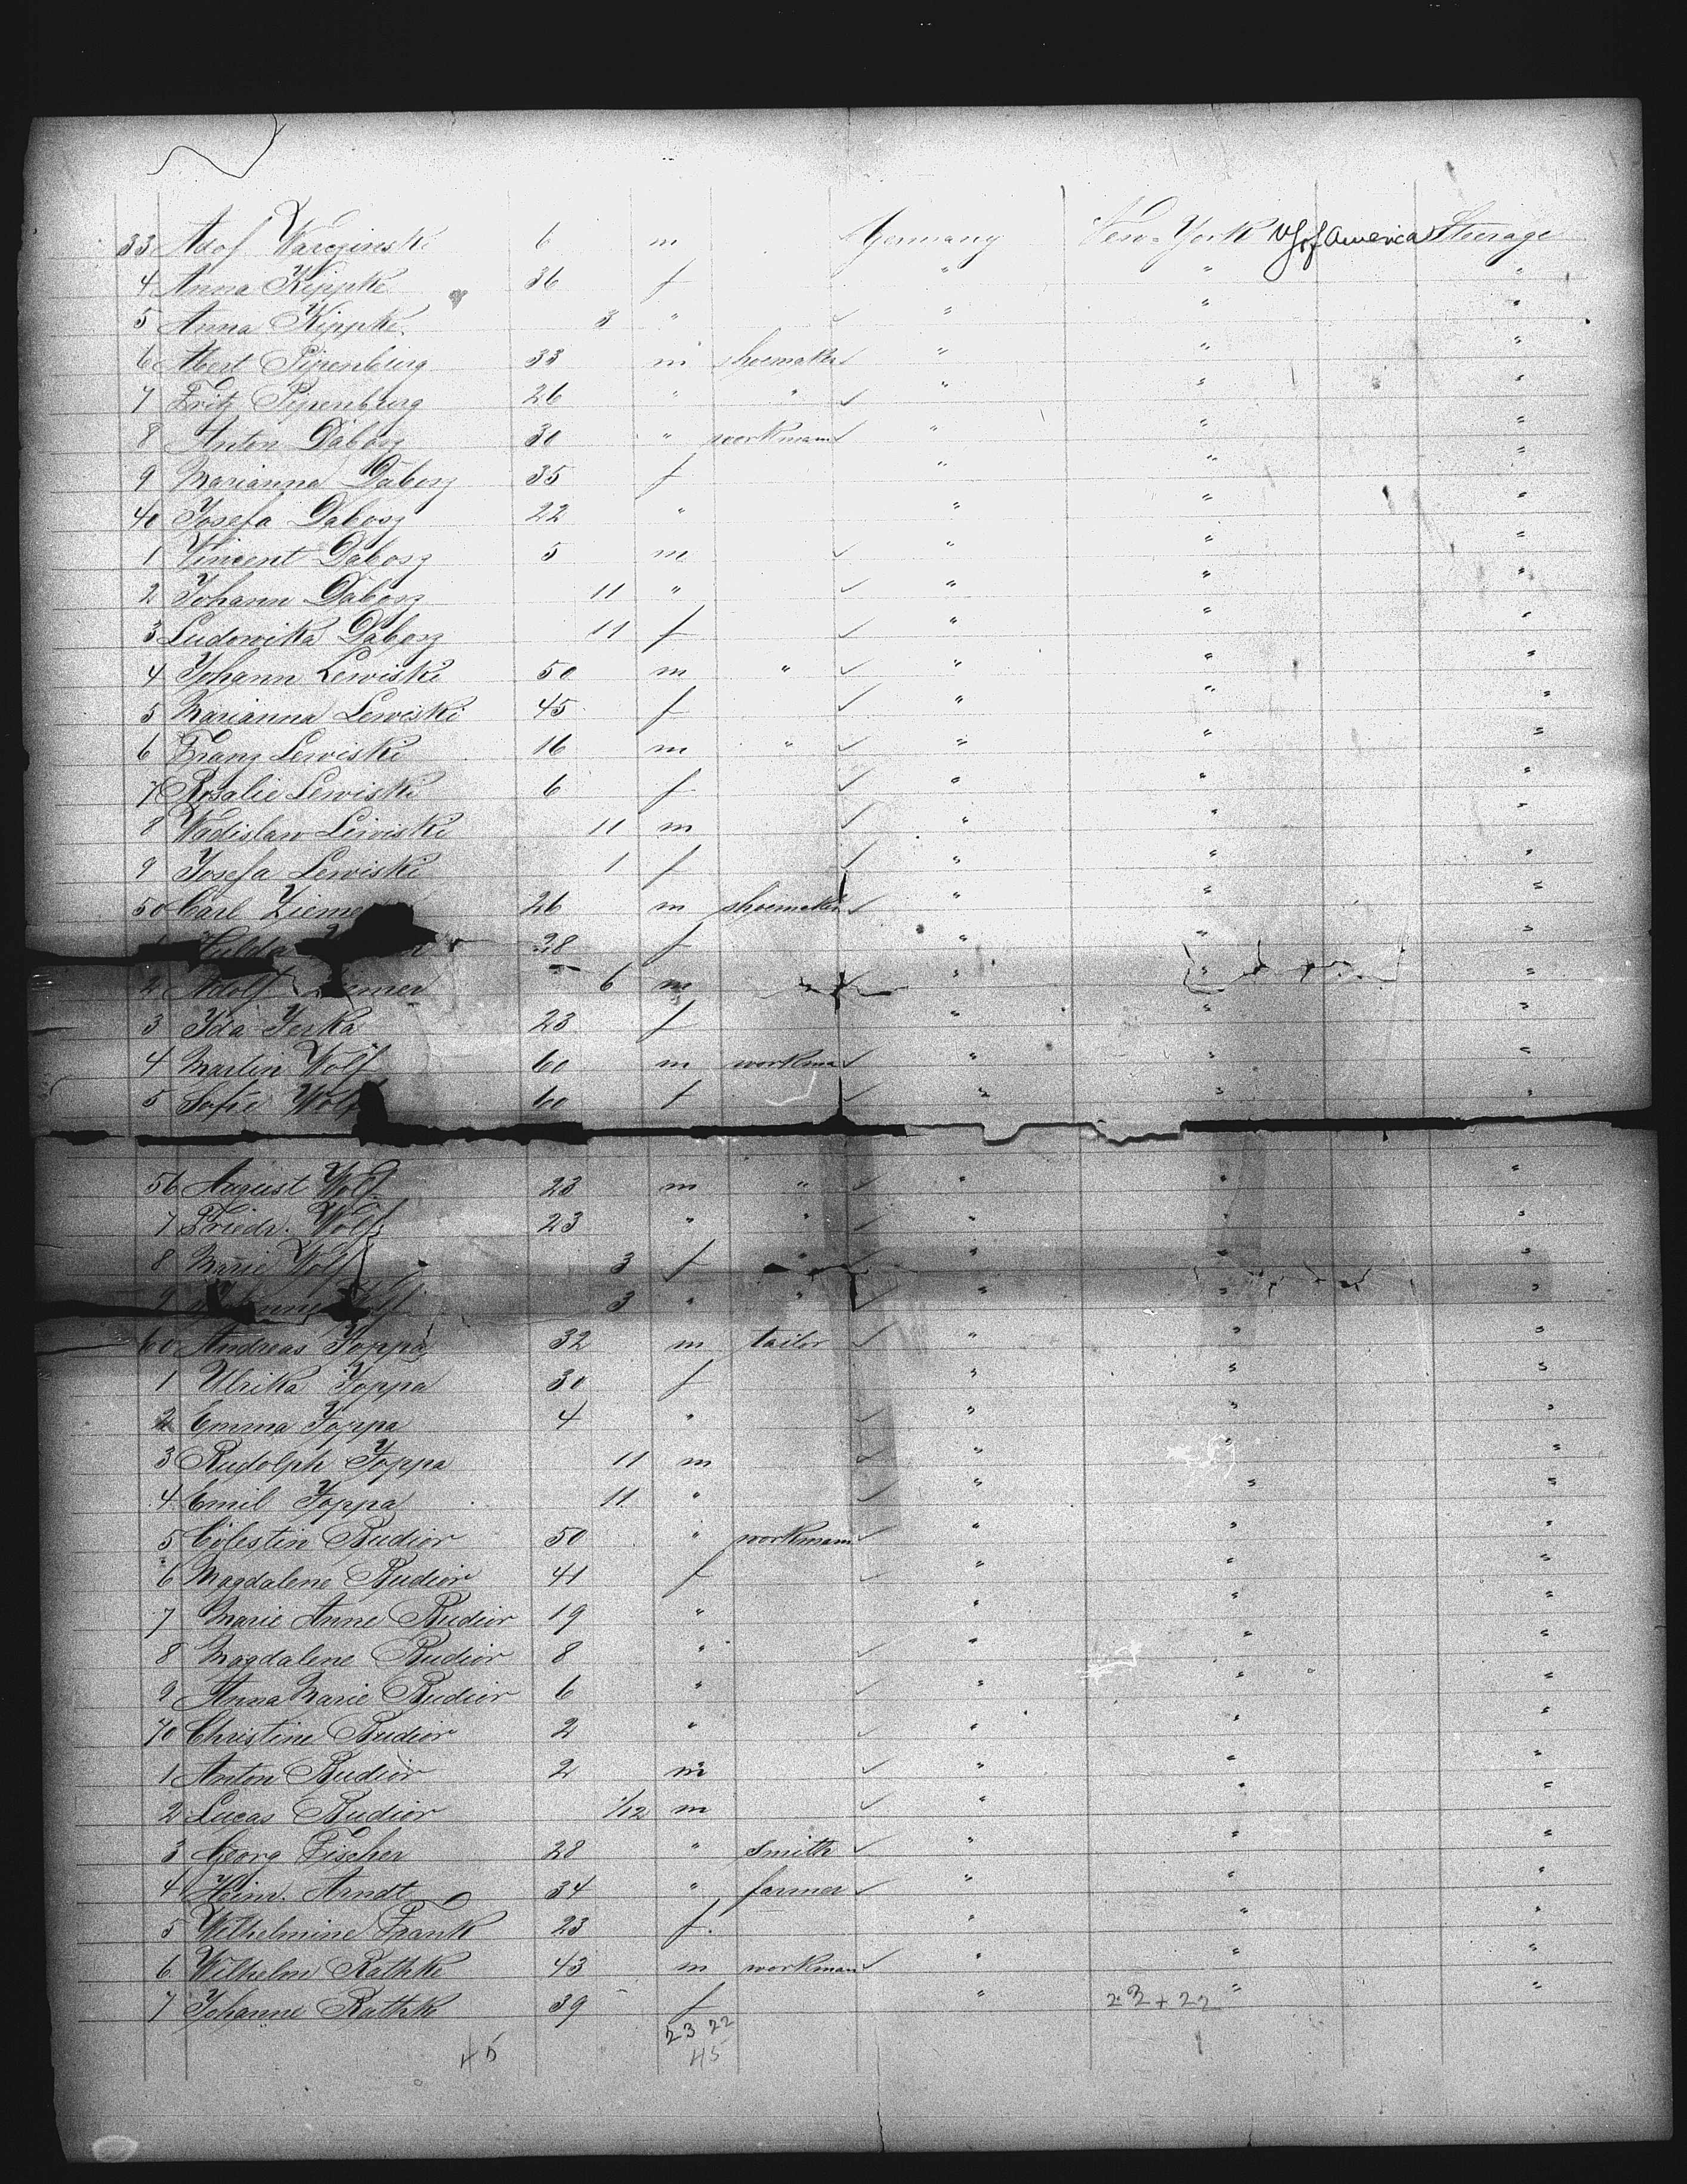 33 Adof Warczinski 6 m Germany New-York US of America Steerage
4 Anna Kippke 36 f " " "
5 Anna Kippke. 3 " " " "
6 Albert Piepenburg 33 m shoemaker " " "
7 Fritz Piepenburg 26 " " " " "
8 Anton Dabosz 30 " workmann " " "
9 Marianna Dabosz 35 f " " "
40 Josefa Dabosz 22 " " " "
1 Vincent Dabosz 5 m " " "
2 Johann Dabosz 11 " " " "
3 Ludowika Dabosz 11 f " " "
4 Johann Lewiski 50 m " " " "
5 Marianna Lewiski 45 f " " "
6 Franz Lewiski 16 m " " " "
7 Rosalie Lewiski 6 f " " "
8 Wadislaw Lewiski 11 m " " "
9 Josefa Lewiski 1 f " " "
50 Carl Zieme 26 m shoemaker " " "
Hulda 28 f " " "
2 Adolf Ziemer 6 m " " "
3 Ida Jeska 23 f " " "
4 Martin Wolf 60 m workman " " "
5 Sofie Wolf 60 f " " "
56 August Wolf 23 m " " " "
7 Friedr. Wolf 23 " " " " "
8 Marie Wolf 3 f " " " "
9 Wolf 3 " " " " "
60 Andreas Joppa 32 m tailor " " "
1 Ulrika Joppa 30 f " " "
2 Emma Joppa 4 " " " "
3 Rudolph Joppa 11 m " " "
4 Emil Joppa 11 " " " "
5 Cölestin Budior 50 " workmann " " "
6 Magdalene Budior 41 f " " "
7 Marie Anne Budior 19 " " " "
8 Magdalene Budior 8 " " " "
9 Anna Marie Budior 6 " " " "
70 Christine Budior 2 " " " "
1 Anton Budior 2 m " " "
2 Lucas Budior 1/12 m " " "
3 Georg Fischer 28 " smith " " "
4 Heinr. Arndt 34 " farmer " " "
5 Wilhelmine Frank 23 f. " " "
6 Wilhelm Rathke 43 m workman " " "
7 Johanne Rathke 39 f " 23 + 22 " "
23 22
45 45